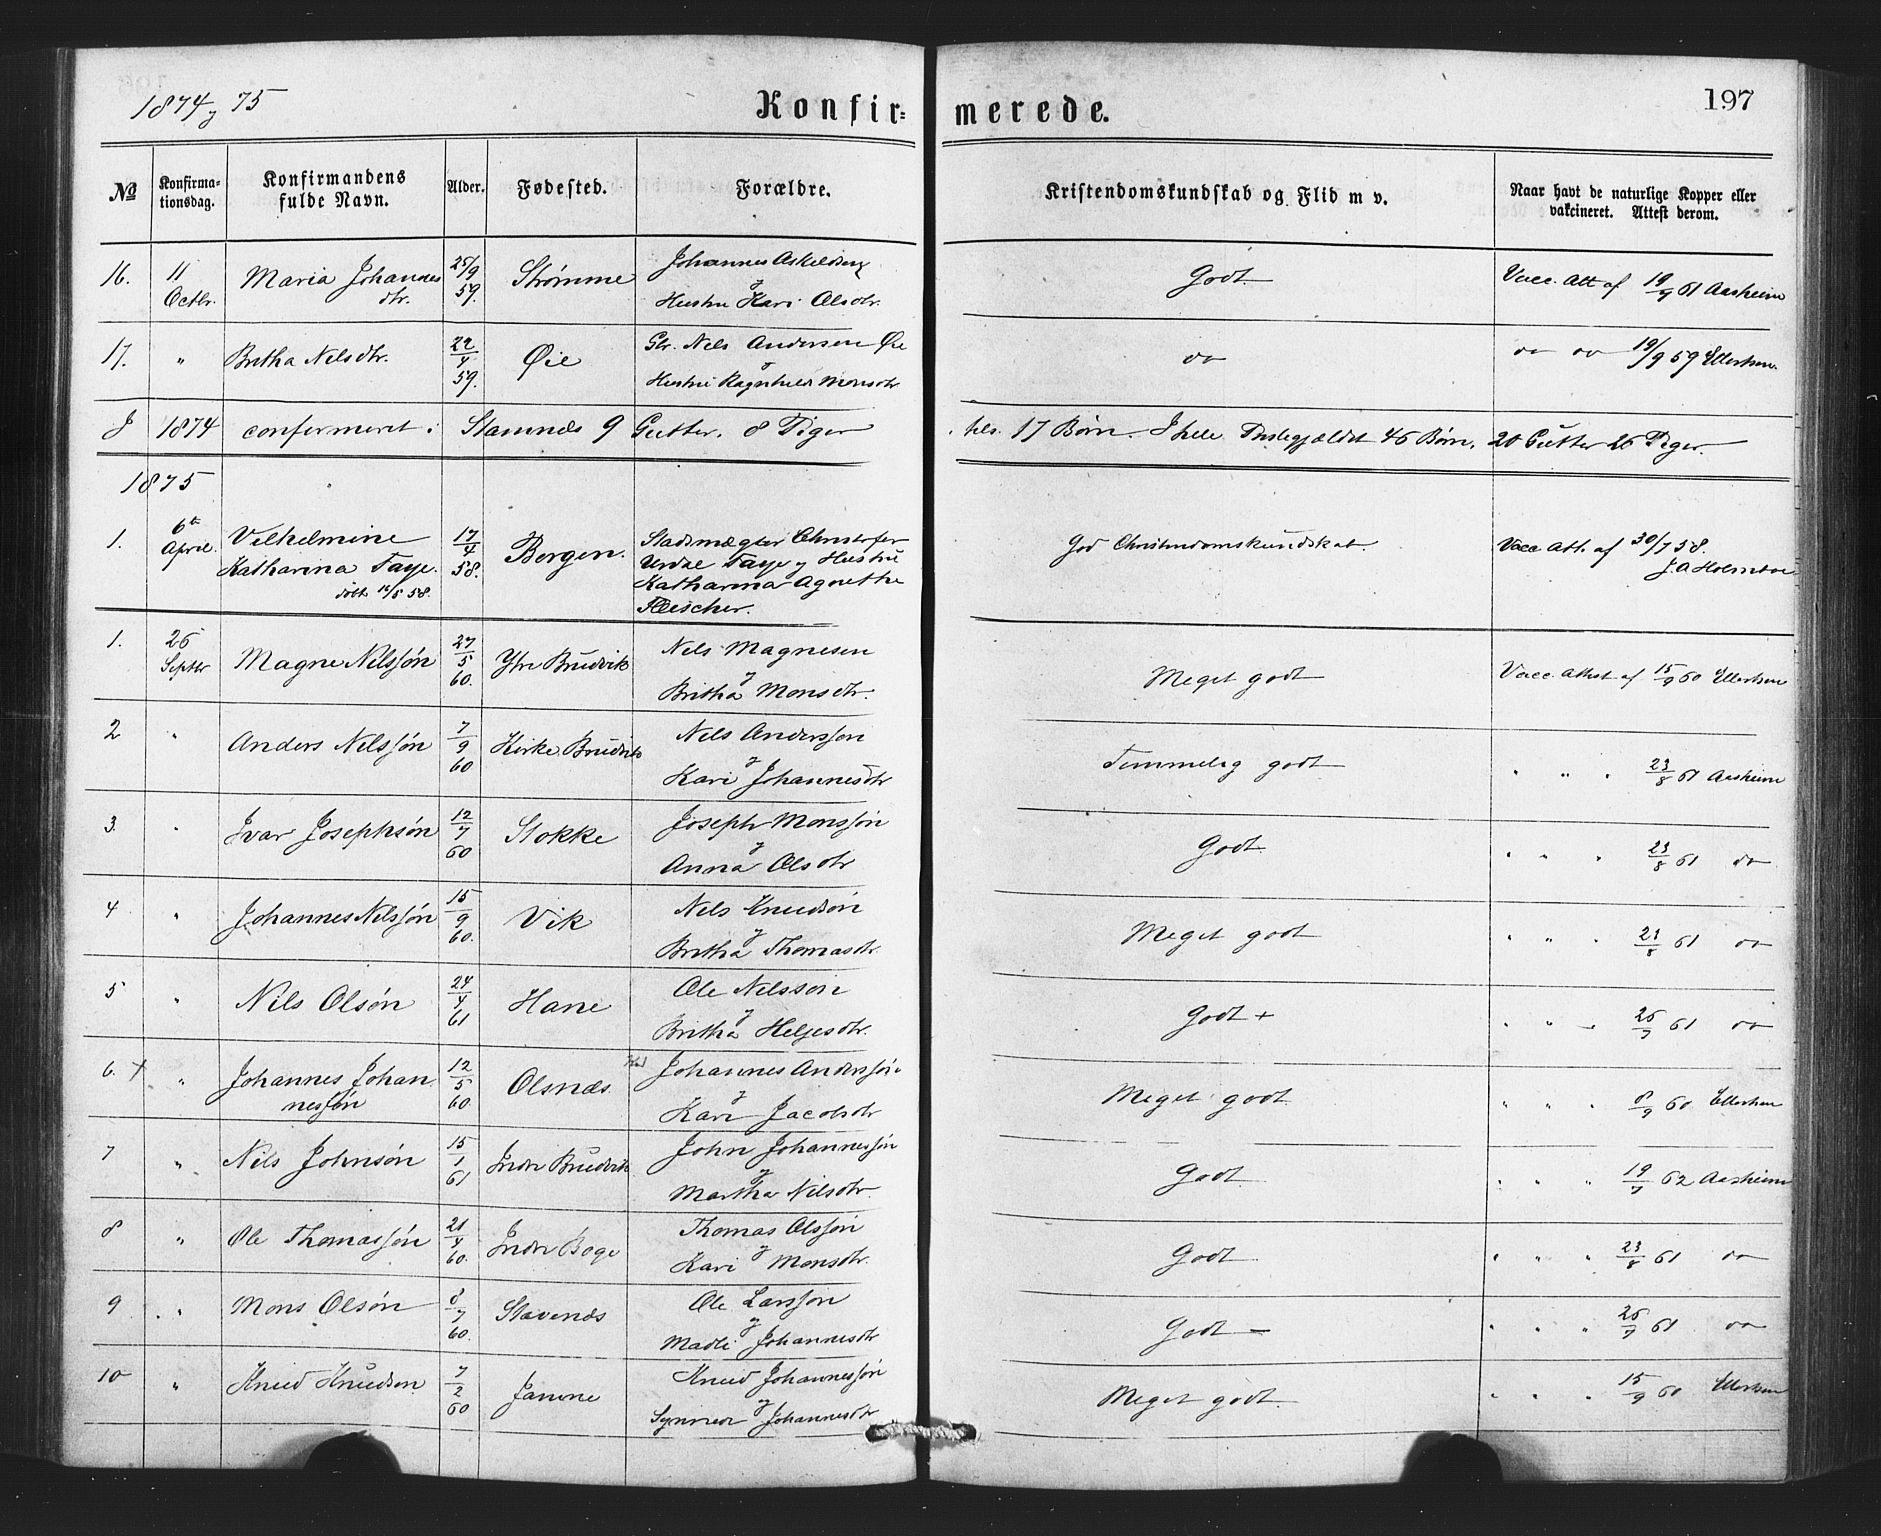 1874 og 75
Konfir=
merede.
197
No
Konfirma-
tionsdag.
Konfirmandens
fulde Navn.
Alder.
Fødested.
Forældre.
Kristendomskundskab og Flid m v.
Naar havt de naturlige Kopper eller
vakcineret. Attest derom.
16. 11 Octbr. Maria Johannes dtr. 25/9 59. Strømme Johannes Askildsen og Hustru Kari Olsdtr. Godt Vacc. Att af 19/9 61 Aasheim
17. " Britha Nilsdtr. 22/4 59. Øie Gbr. Nels Andersen Øie og Hustru Ragnhild Monsdtr. do do do 19/9 59 Ellertsen.
I 1874 confirmeret i Stamnæs 9 Gutter. 8 Piger tils. 17 Børn. I hele Præstegjældet 46 Børn, 20 Gutter 26 Piger.
1875
1. 6te April. Vilhelmine Katharina Faye. døbt 16/5 58. 17/4 58. Bergen. Stadsmægler Christofer Urdal Faye og Hustru Katharina Agnethe Fleischer. God Christendomskundskab. Vacc Att. af 30/7 58. J.A Holmboe
1. 26 Septbr Magne Nilssøn 27/5 60. Ytre Bruvik Nels Magnesen og Britha Monsdtr. Meget godt Vacc. Attest af 15/9 60 Ellertsen
2 " Anders Nilssøn 7/9 60 Kirke Bruvik Nils Anderssøn og Kari Johannesdtr Temmelig godt " " " 23/8 61 Aasheim
3. " Ivar Josephsøn 12/7 60 Stokke Joseph Monssøn og Anna Olsdtr Godt " " " 23/8 61 do
4 " Johannes Nilssøn 15/9 60. Vik Nels Knudsøn og Britha Thomasdtr. Meget godt " " " 23/8 61 do
5 " Nils Olsøn 24/4 61 Hane Ole Nelsson og Britha Helgesdtr. Godt + " " " 26/7 61 do
6. + " Johannes Johannessøn 12/5 60 Olsnæs Johannes Anderssøn og Kari Jacobsdtr Meget godt " " " 8/9 60 Ellertsen
7 " Nils Johnsøn 15/1 61 Indre Bruvik John Johannessøn og Martha Nilsdtr. Godt " " " 19/7 62 Aasheim
8 " Ole Thomassøn 21/4 60. Indre Boge Thomas Olssøn og Kari Monsdtr. Godt " " " 23/8 61 do
9 " Mons Olsøn 8/7 60. Stavenæs Ole Larssøn og Madli Johannesdtr Godt - " " " 26/7 61 do
10 " Knud Knudsen 7/2 60 Jamne Knud Johannessøn og Synneva Johannesdtr Meget godt. " " " 15/9 60 Ellertsen